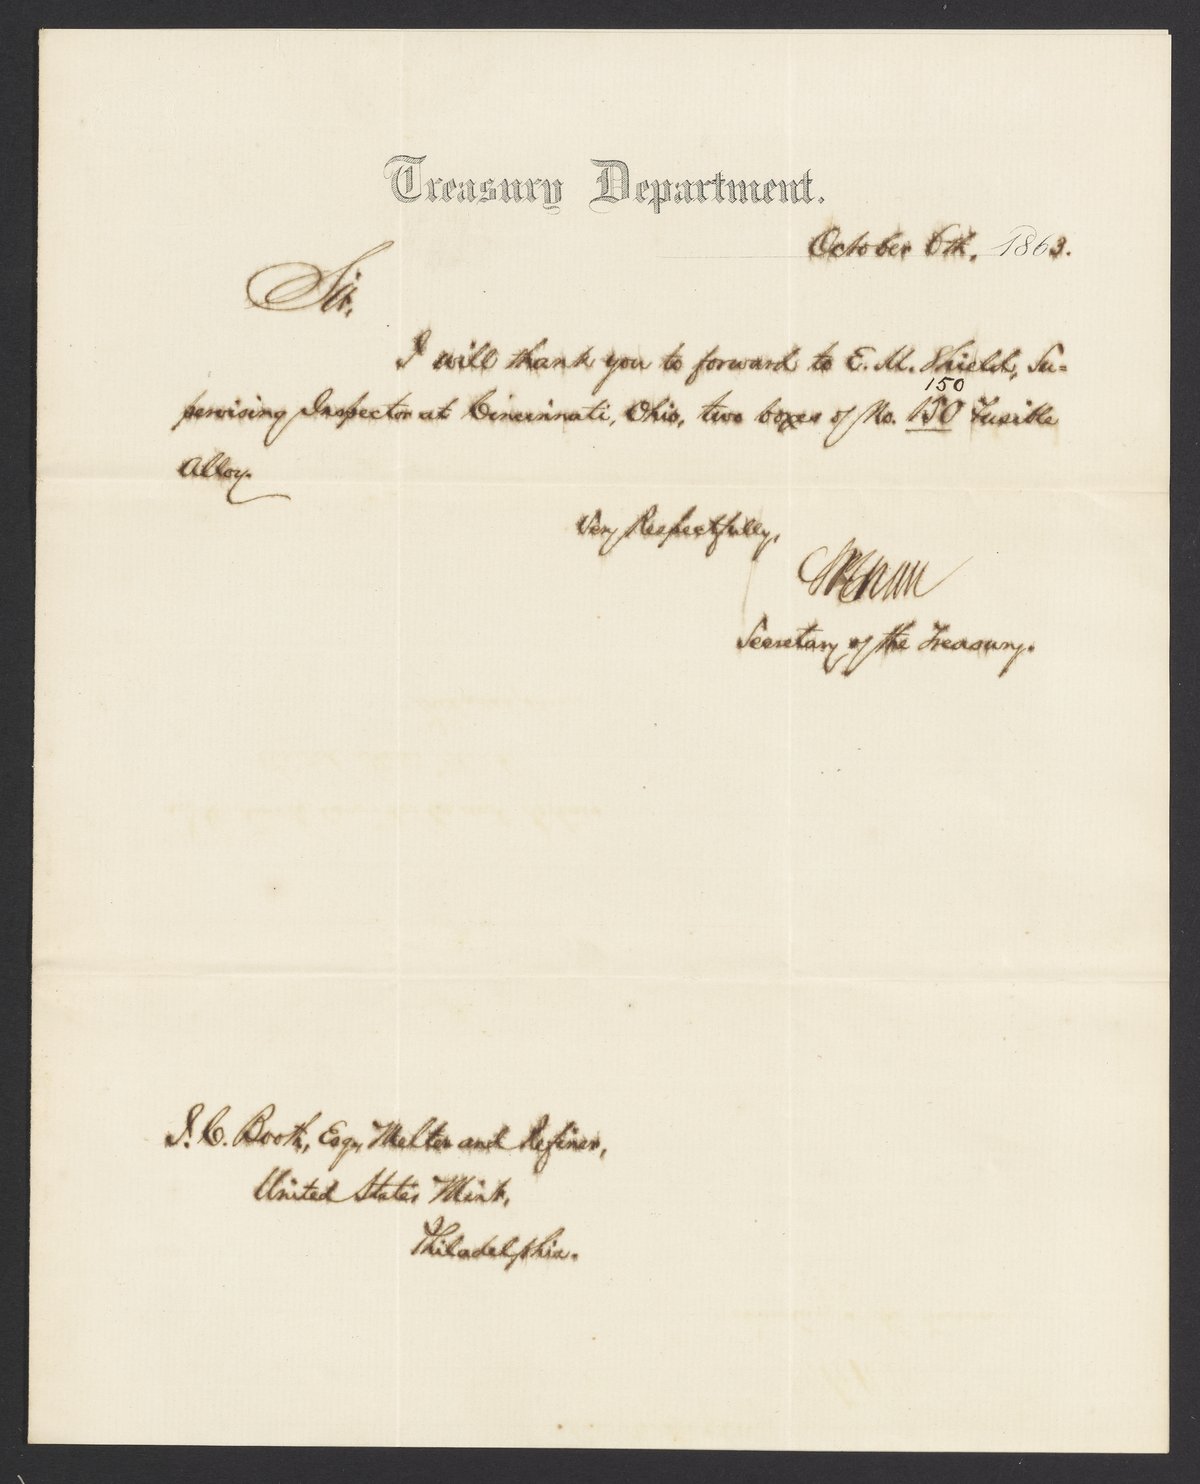 Treasury Department.
October 6th, 1863.
Sir,
I will thank you to forward to E. M. Shield, Su=
pervising Inspector at Cincinnati, Ohio, two boxes of No. 150 Fusible
150
Alloy.
Very Respectfully,
Secretary of the Treasury.
J. C. Booth, Esq, Melter and Refiner,
United States Mint,
Philadelphia.